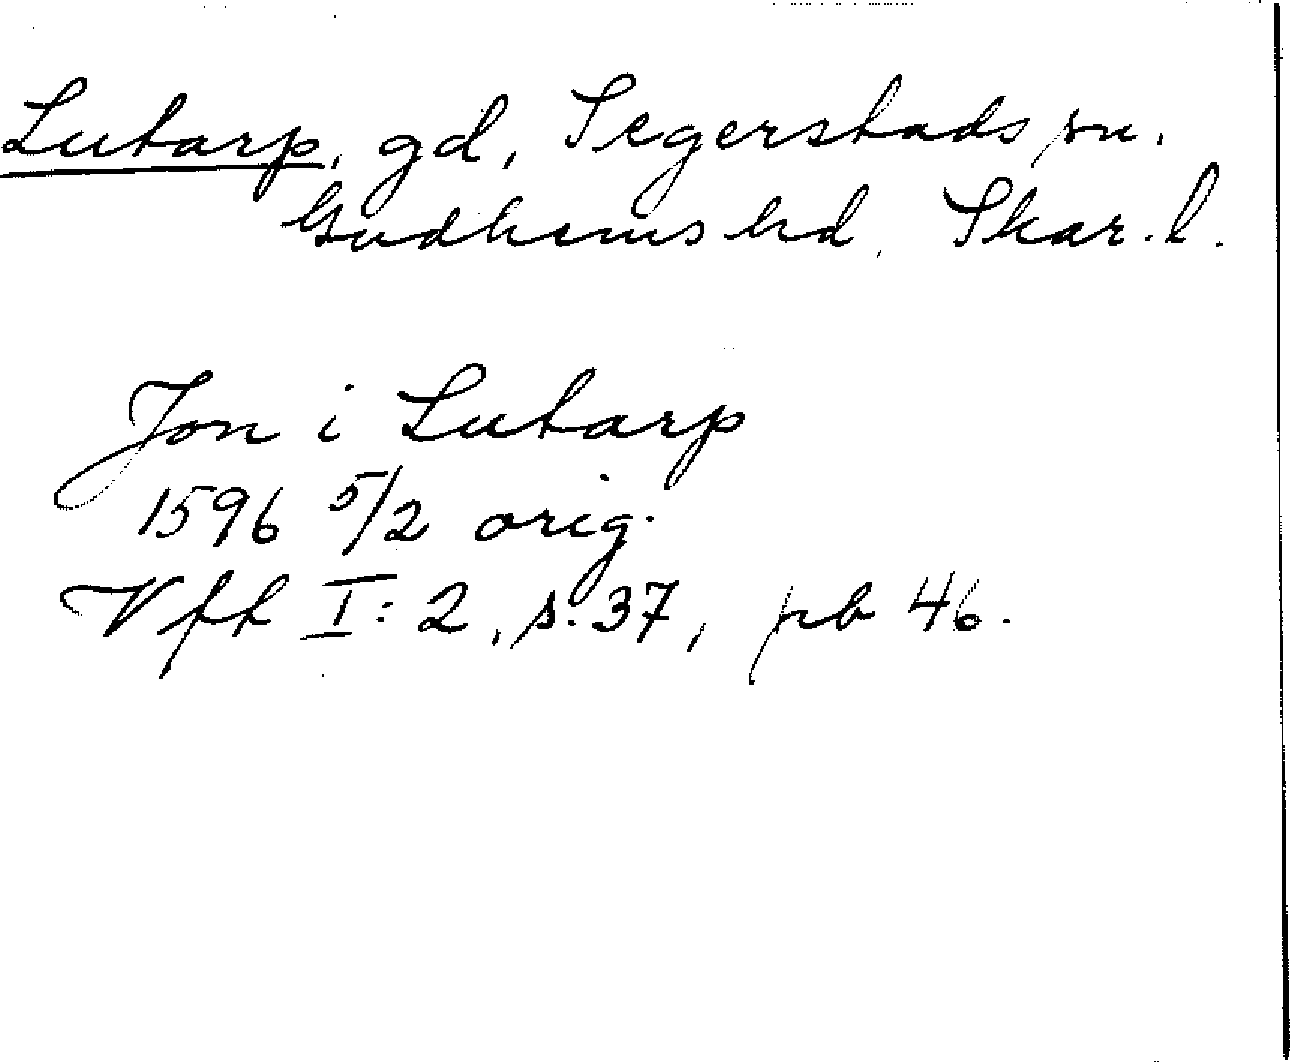 Lutarp, gd, Segerstads sn.
Gudhems hd, Skar. l.
Jon i Lutarp
1596 5/2 orig.
Vff I: 2, s. 37, pb 46.